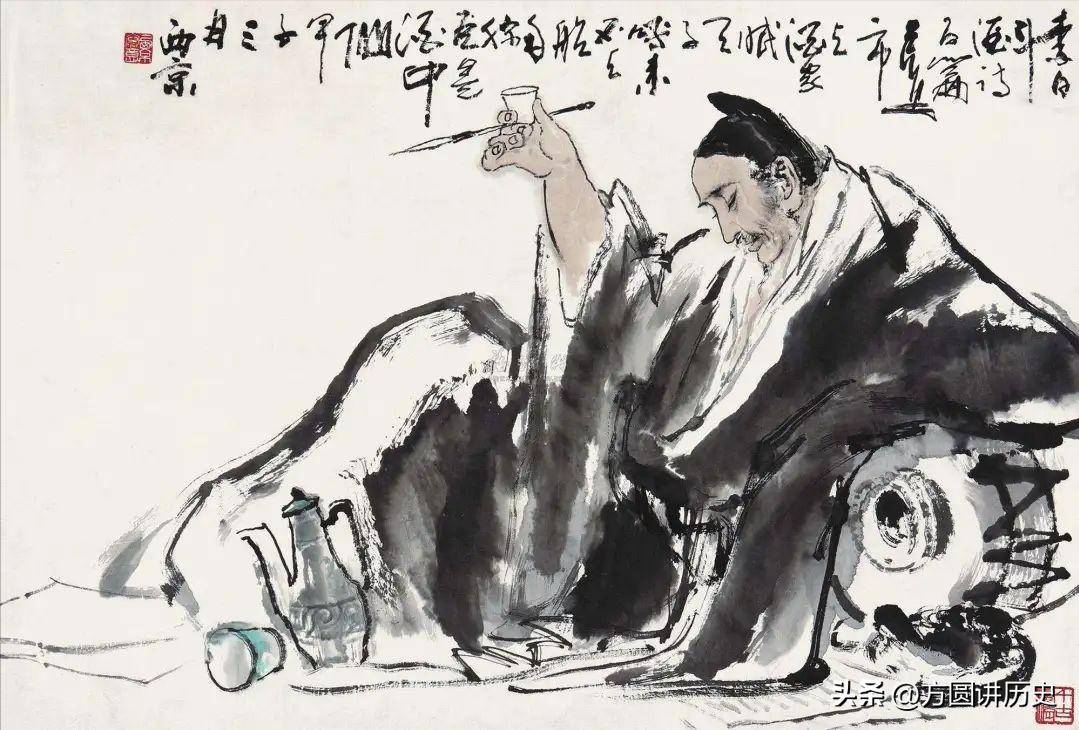 李白
斗
酒诗
百篇
长安
市
上
酒家
眠
天
子
呼来
不上
船
自
称
臣是
酒中
仙
甲
子
三
月
西京
头条 @方圆讲历史